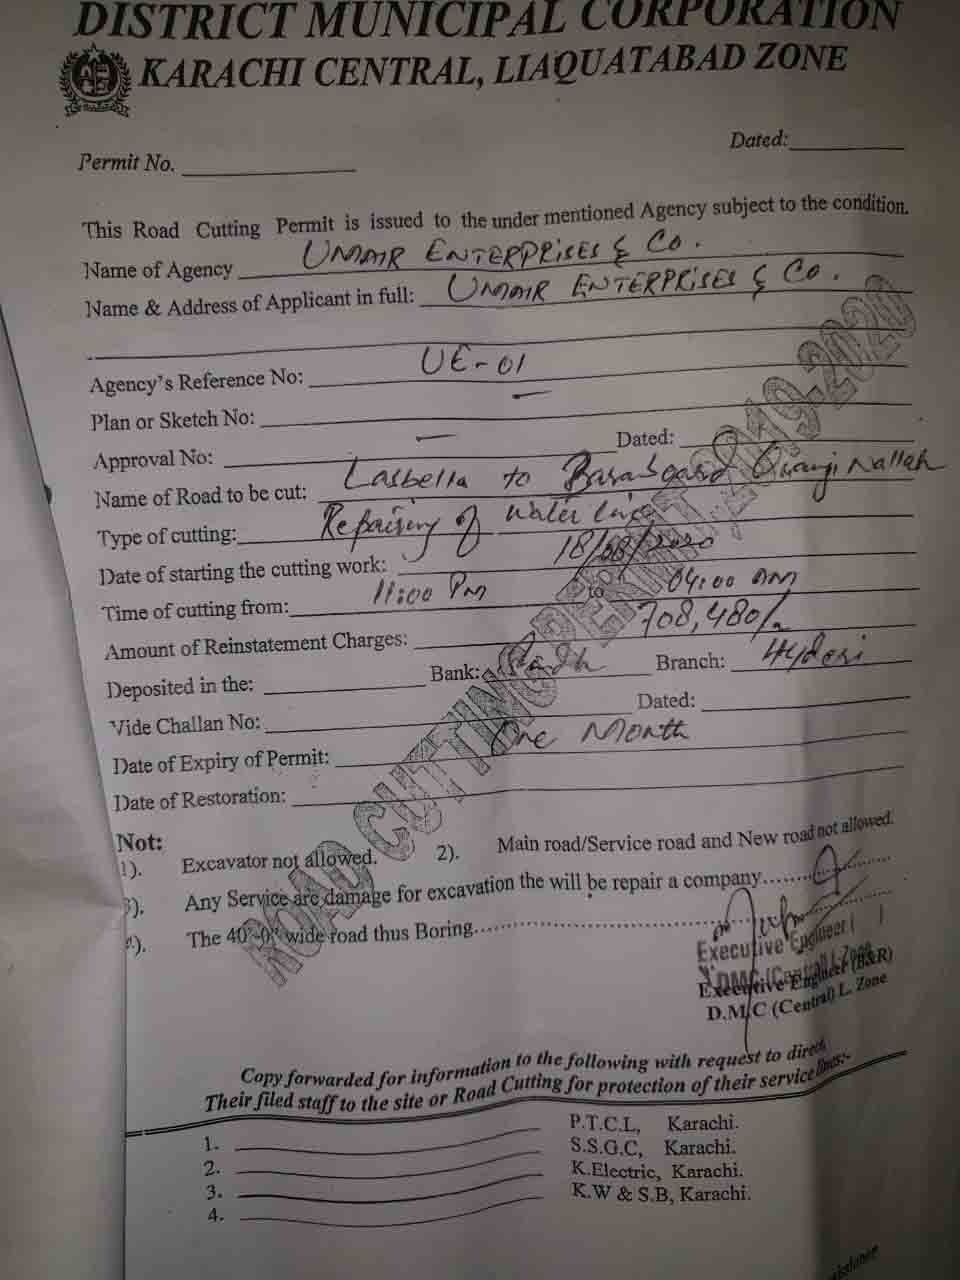 DISTRICT MUNICIPAL CORPORATION
KARACHI CENTRAL, LIAQUATABAD ZONE
Permit No. ________ Dated: ________
This Road Cutting Permit is issued to the under mentioned Agency subject to the condition.
Name of Agency UMAIR ENTERPRISES & Co.
Name & Address of Applicant in full: UMAIR ENTERPRISES & Co.
Agency's Reference No: UE-01
Plan or Sketch No: —
Approval No: — Dated:
Name of Road to be cut: Lasbella to Nallah
Type of cutting: Repairing of Water Line
Date of starting the cutting work: 18/08/2020
Time of cutting from: 11:00 Pm to 04:00 am
Amount of Reinstatement Charges: 708,480/-
Deposited in the: Bank: Sindh Branch: Hyderi
Vide Challan No: Dated:
Date of Expiry of Permit: One Month
Date of Restoration:
ROAD CUTTING PERMIT, 2019-2020
Not:
1). Excavator not allowed. 2). Main road/Service road and New road not allowed.
3). Any Service are damage for excavation the will be repair a company
The 40'-0" wide road thus Boring
Executive Engineer ( )
DMC (Central) L. Zone
Executive Engineer (B&R)
D.M.C (Central) L. Zone
Copy forwarded for information to the following with request to direct
Their filed staff to the site or Road Cutting for protection of their service lines:-
1. P.T.C.L, Karachi.
2. S.S.G.C, Karachi.
3. K.Electric, Karachi.
4. K.W & S.B, Karachi.